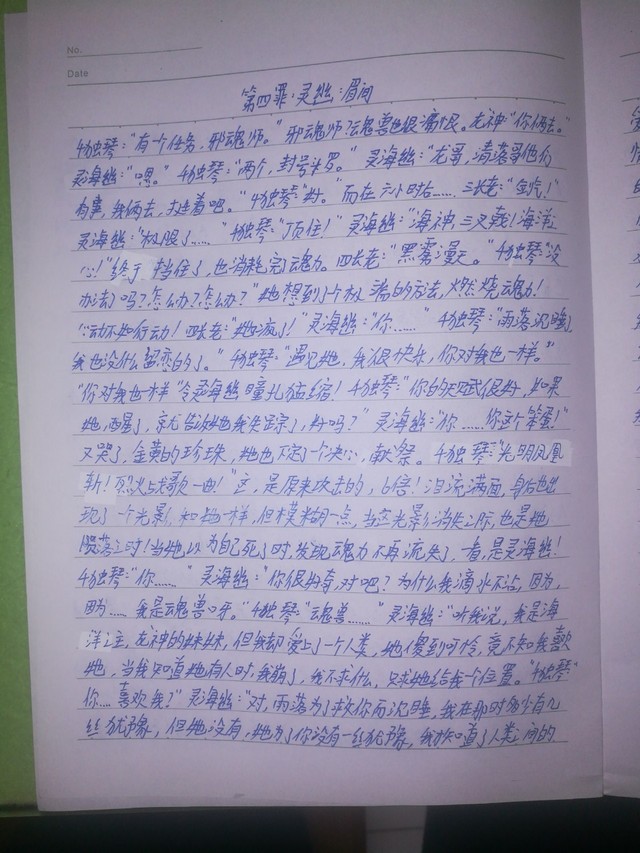 No.
Date
第四罪:灵幽:眉间
千独琴:“有个任务,邪魂师。”邪魂师?魂兽也很痛恨。龙神:“你俩去。”
灵海幽:“嗯。”千独琴:“两个,封号斗罗。”灵海幽:“龙哥,清落哥他们
有事,我俩去,扛着吧。”千独琴:“好。”而在六小时后……三长老:“金咒!”
灵海幽:“极限了……”千独琴:“顶住!”灵海幽:“海神三叉戟!海洋之
心!”终于挡住了,也消耗完魂力。四长老:“黑雾漫天。”千独琴:“没
办法了吗?怎么办?怎么办?”她想到了个极端的方法,燃烧魂力!
心动不如行动!四长老:“她疯了!”灵海幽:“你……”千独琴:“雨落沉睡,
我也没什么留恋的了。”千独琴:“遇见她,我很快乐,你对我也一样。”
“你对我也一样”令灵海幽瞳孔猛缩!千独琴:“你的天赋很好,如果
她,酉星了,就告诉她我失踪了,好吗?”灵海幽:“你……你这个笨蛋!”
又哭了,金黄的珍珠,她也下定了个决心,献祭。千独琴:“光明凤凰
斩!烈火战歌一曲!”这,是原来攻击的,6倍!泪流满面,身后也出
现了一个光影,和她一样,但模糊一点,当这光影消失之际,也是她
陨落之时!当她以为自己死了时,发现魂力不再流失了,一看,是灵海幽!
千独琴:“你……”灵海幽:“你很好奇,对吧?为什么我滴水不沾,因为,
因为……我是魂兽呀。”千独琴:“魂兽……”灵海幽:“听我说,我是海
洋之主,龙神的妹妹,但我却爱上了一个人类,她傻到可怜,竟不知我喜欢
她,当我知道她有人时,我崩了,我不求什么,只求她给我一个位置。”千独琴:“
你……喜欢我?”灵海幽:“对,雨落为了救你而沉睡,我在那时多少有几
丝犹豫,但她没有,她为了你没有一丝犹豫,我知道了人类之间的